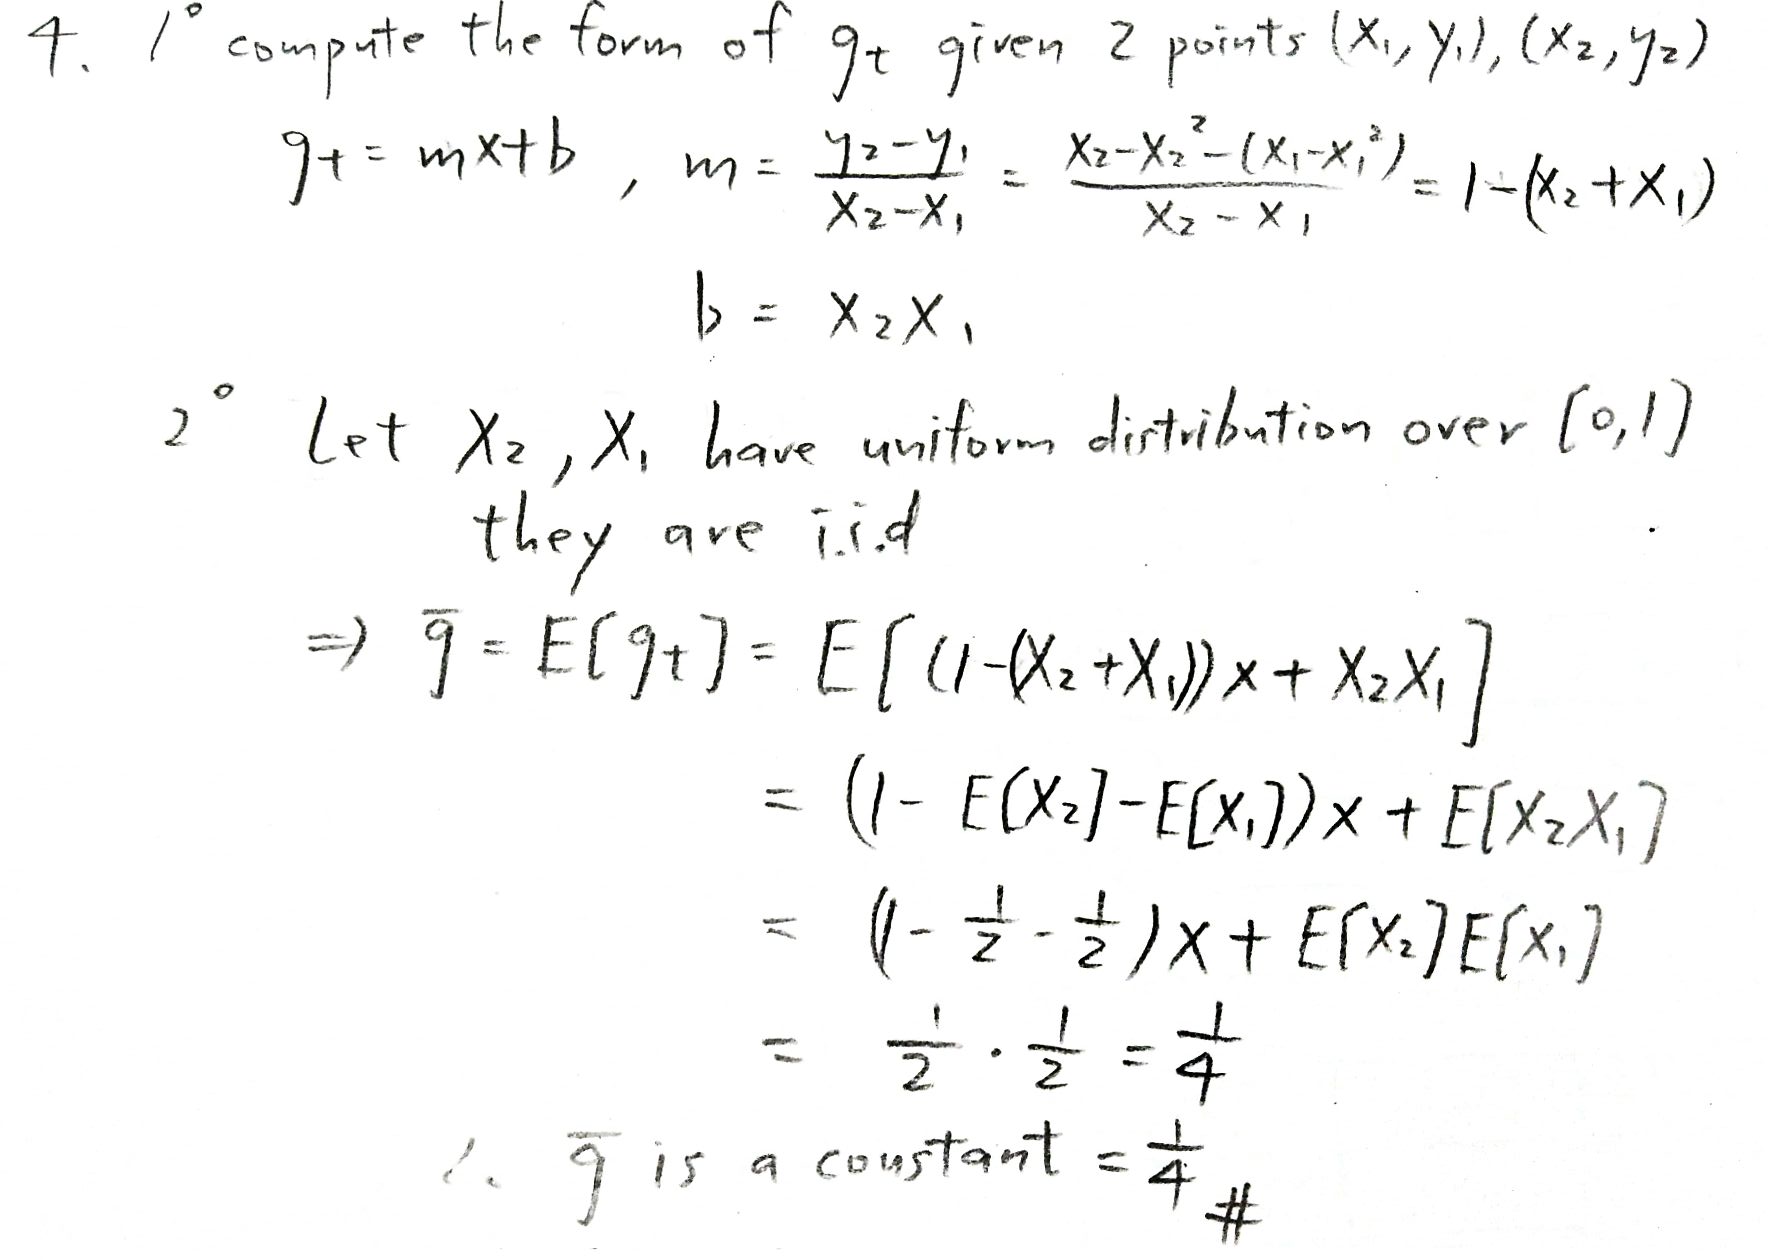 4. 1° compute the form of g_t given 2 points (X₁, y₁), (X₂, y₂)
g_t = mx+b , m = (y₂-y₁)/(X₂-X₁) = (X₂-X₂²-(X₁-X₁²))/(X₂-X₁) = 1-(X₂+X₁)
b = X₂X₁
2° Let X₂, X₁ have uniform distribution over [0,1]
they are i.i.d
⇒ g̅ = E[g_t] = E[(1-(X₂+X₁))x + X₂X₁]
= (1- E[X₂]-E[X₁])x + E[X₂X₁]
= (1- 1/2 - 1/2)x + E[X₂]E[X₁]
= 1/2 · 1/2 = 1/4
∴ g̅ is a constant = 1/4 #